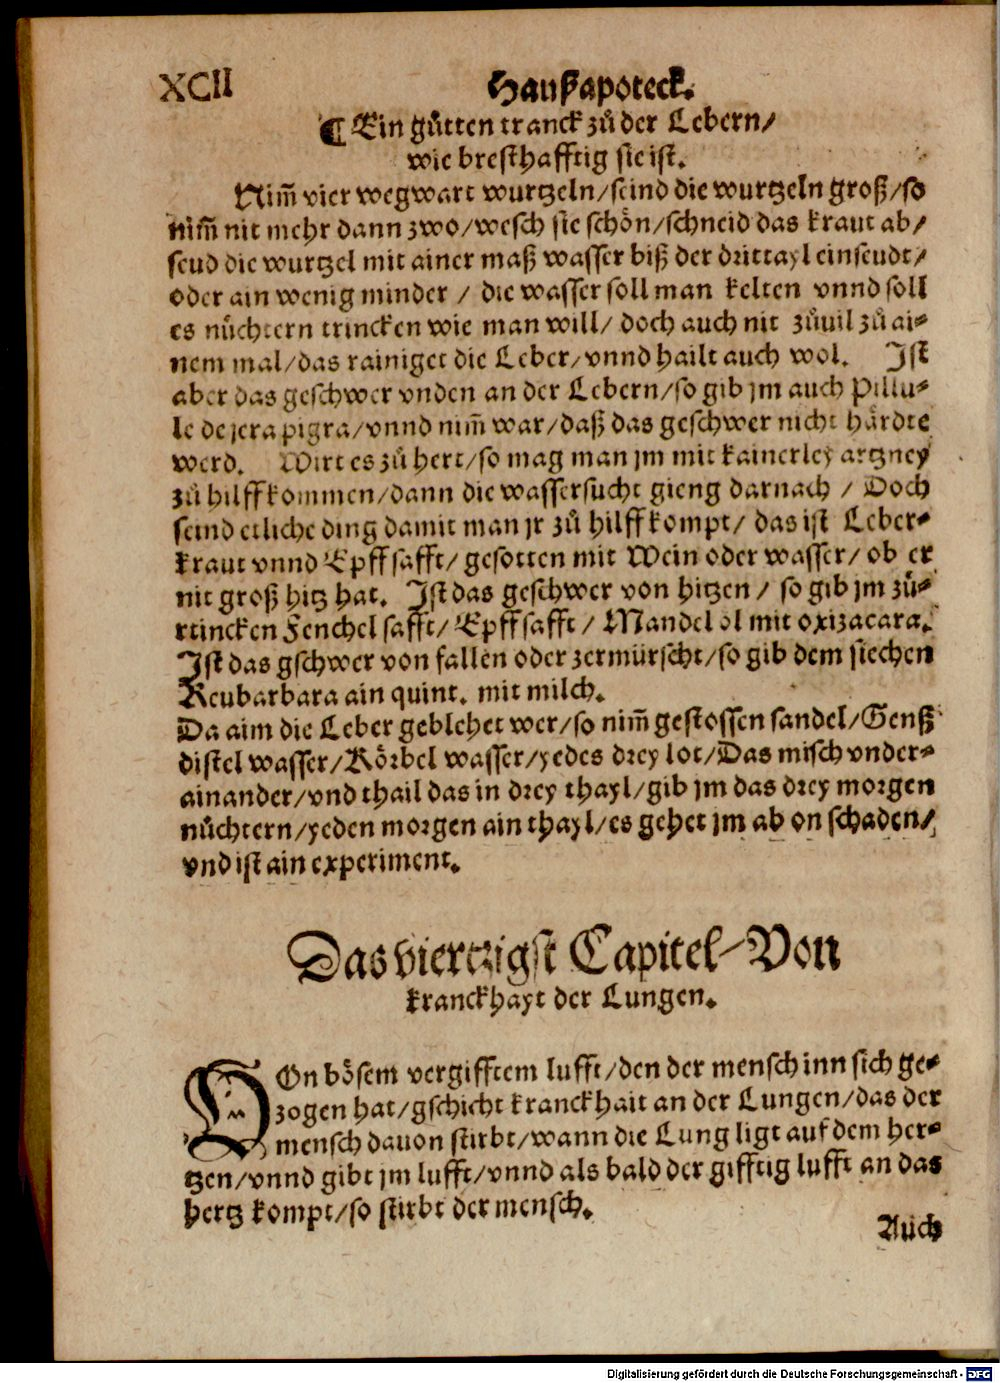 XCII Haußapoteck.
¶ Ein gůtten tranck zů der Lebern/
wie bresthafftig sie ist.
Nim̃ vier wegwart wurtzeln/seind die wurtzeln groß/so
nim̃ nit mehr dann zwo/wesch sie schön/schneid das kraut ab/
seud die wurtzel mit ainer maß wasser biß der drittayl einseudt/
oder ain wenig minder / die wasser soll man kelten vnnd soll
es nůchtern trincken wie man will/ doch auch nit zůuil zů ai⸗
nem mal/das rainiget die Leber/vnnd hailt auch wol. Ist
aber das geschwer vnden an der Lebern/so gib jm auch Pillu⸗
le de jera pigra/vnnd nim̃ war/daß das geschwer nicht hårdte
werd. Wirt es zů hert/so mag man jm mit kainerley artzney
zů hilff kommen/dann die wassersucht gieng darnach / Doch
seind etliche ding damit man jr zů hilff kompt/ das ist Leber⸗
kraut vnnd Epffsafft/ gesotten mit Wein oder wasser/ ob er
nit groß hitz hat. Ist das geschwer von hitzen / so gib jm zů⸗
rtincken Fenchel safft/ Epffsafft / Mandel öl mit oxizacara.
Ist das gschwer von fallen oder zermürscht/so gib dem siechen
Reubarbara ain quint. mit milch.
Da aim die Leber geblehet wer/so nim̃ gestossen sandel/Genß
distel wasser/Körbel wasser/yedes drey lot/Das misch vnder⸗
ainander/vnd thail das in drey thayl/gib jm das drey morgen
nůchtern/yeden morgen ain thayl/es gehet jm ab on schaden/
vnd ist ain experiment.
Das viertzigst Capitel/Von
kranckhayt der Lungen.
VOn bösem vergifftem lufft/den der mensch inn sich ge⸗
zogen hat/gschicht kranckhait an der Lungen/das der
mensch dauon stirbt/wann die Lung ligt auf dem her⸗
tzen/vnnd gibt jm lufft/vnnd als bald der gifftig lufft an das
hertz kompt/so stirbt der mensch.
Auch
Digitalisierung gefördert durch die Deutsche Forschungsgemeinschaft - DFG